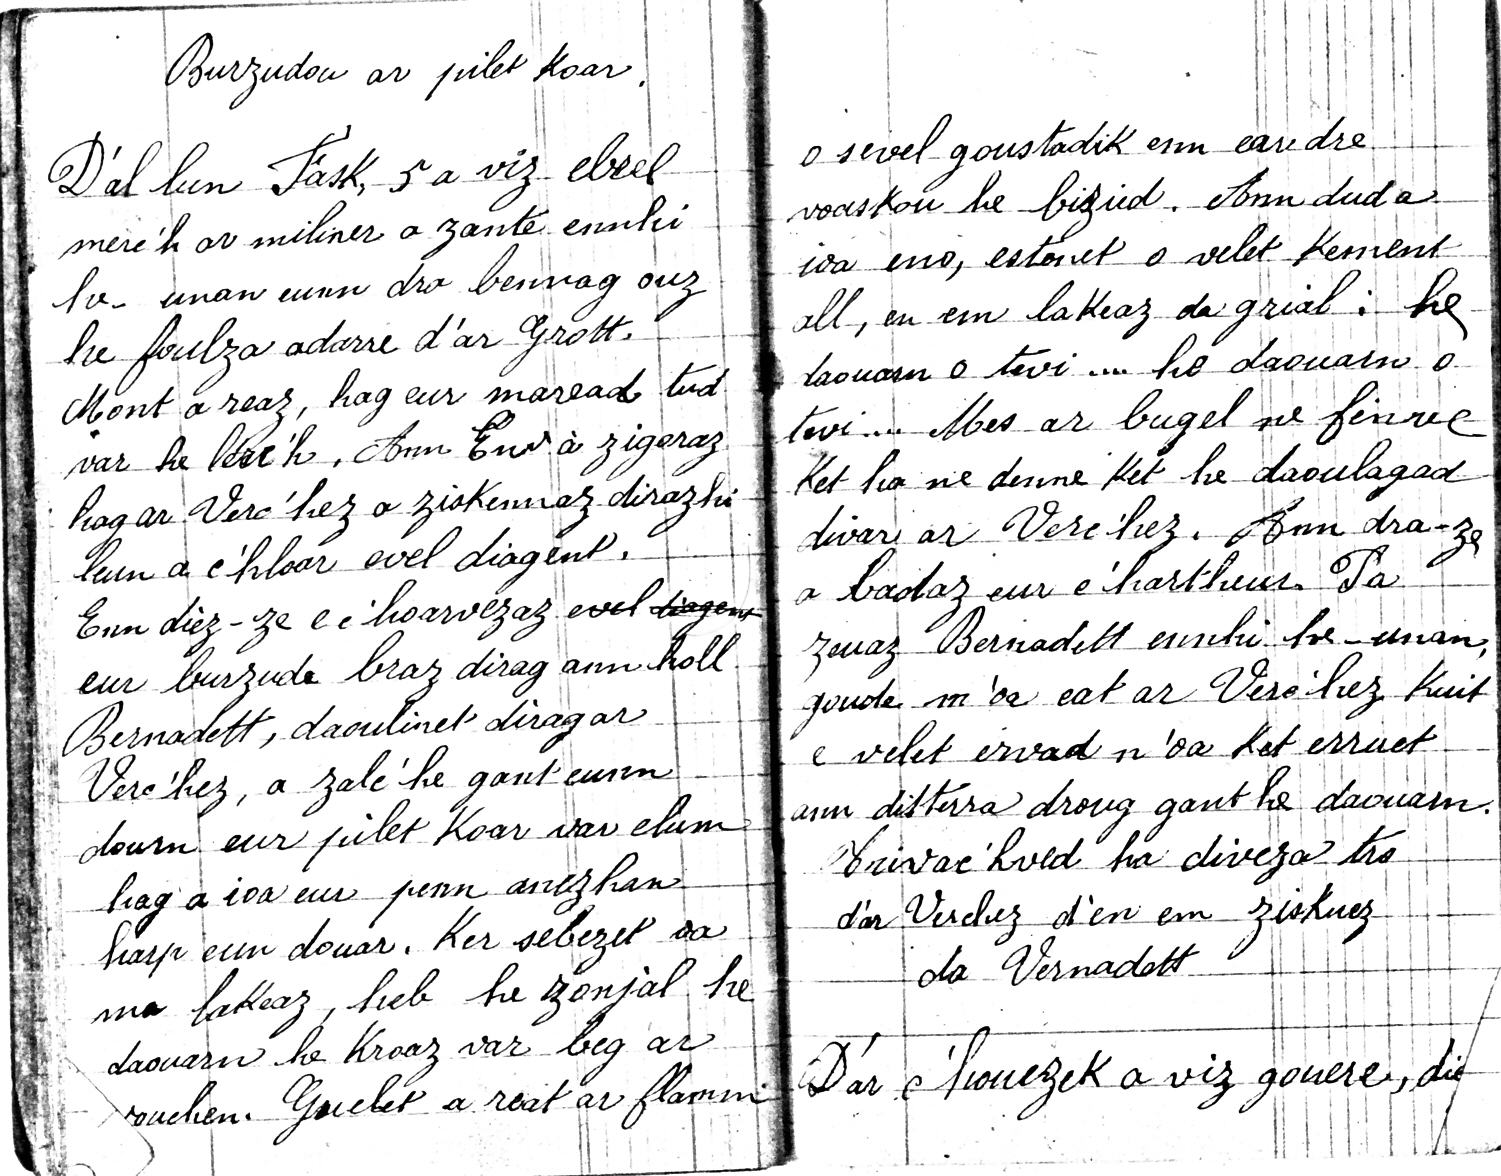 Burzudou ar pilet koar.
D'al lun Fask, 5 a viz ebrel
merc'h ar miliner a zante ennhi
he-unan eunn dra bennag ouz
he foulza adarre d'ar Grott.
Mont a reaz, hag eur maread tud
var he lerc'h. Ann Env à zigoraz
hag ar Verc'hez a ziskennaz dirazhi
leun a c'hloar evel diagent.
Enn diez-ze e c'hoarvezaz evel diagent
eur burzud braz dirag ann holl
Bernadett, daoulinet dirag ar
Verc'hez, a zalc'he gant eunn
dourn eur pilet koar var elum
hag a ioa eur penn anezhan
harp eun douar. Ker sebezet oa
ma lakeaz, heb he zonjal he
daouarn he kroaz var beg ar
rouchen. Guelet a reat ar flamm
o sevel goustadik enn ear dre
voaskou he biziied. Ann dud a
ioa eno, estonet o velet kement
all, en em lakeaz da grial : he
daouarn o tevi .... he daouarn o
tevi .... Mes ar bugel ne finve
ket ha ne denne ket he daoulagad
divar ar Verc'hez. Ann dra-ze
a badaz eur c'hartheur. Pa
zeuaz Bernadett ennhi he-unan,
goude m'oa eat ar Verc'hez kuit
e velet ervad n'oa ket erruet
ann disterra droug gant he daouarn.
Trivac'hved ha diveza tro
d'ar Verchez d'en em ziskuez
da Vernadett
D'ar c'houezek a viz gouere, die